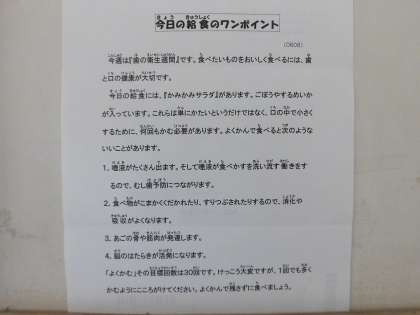 今日の給食のワンポイント
(0608)
今週は『歯の衛生週間』です。食べたいものをおいしく食べるには、歯
と口の健康が大切です。
今日の給食には、『かみかみサラダ』があります。ごぼうやするめいか
が入っています。これらは単にかたいというだけではなく、口の中で小さく
するために、何回もかむ必要があります。よくかんで食べると次のような
いいことがあります。
1．唾液がたくさん出ます。そして唾液が食べかすを洗い流す働きをす
るので、むし歯予防につながります。
2．食べ物がこまかくくだかれたり、すりつぶされたりするので、消化や
吸収がよくなります。
3．あごの骨や筋肉が発達します。
4．脳のはたらきが活発になります。
「よくかむ」その目標回数は30回です。けっこう大変ですが、1回でも多く
かむようにこころがけてください。よくかんで残さずに食べましょう。